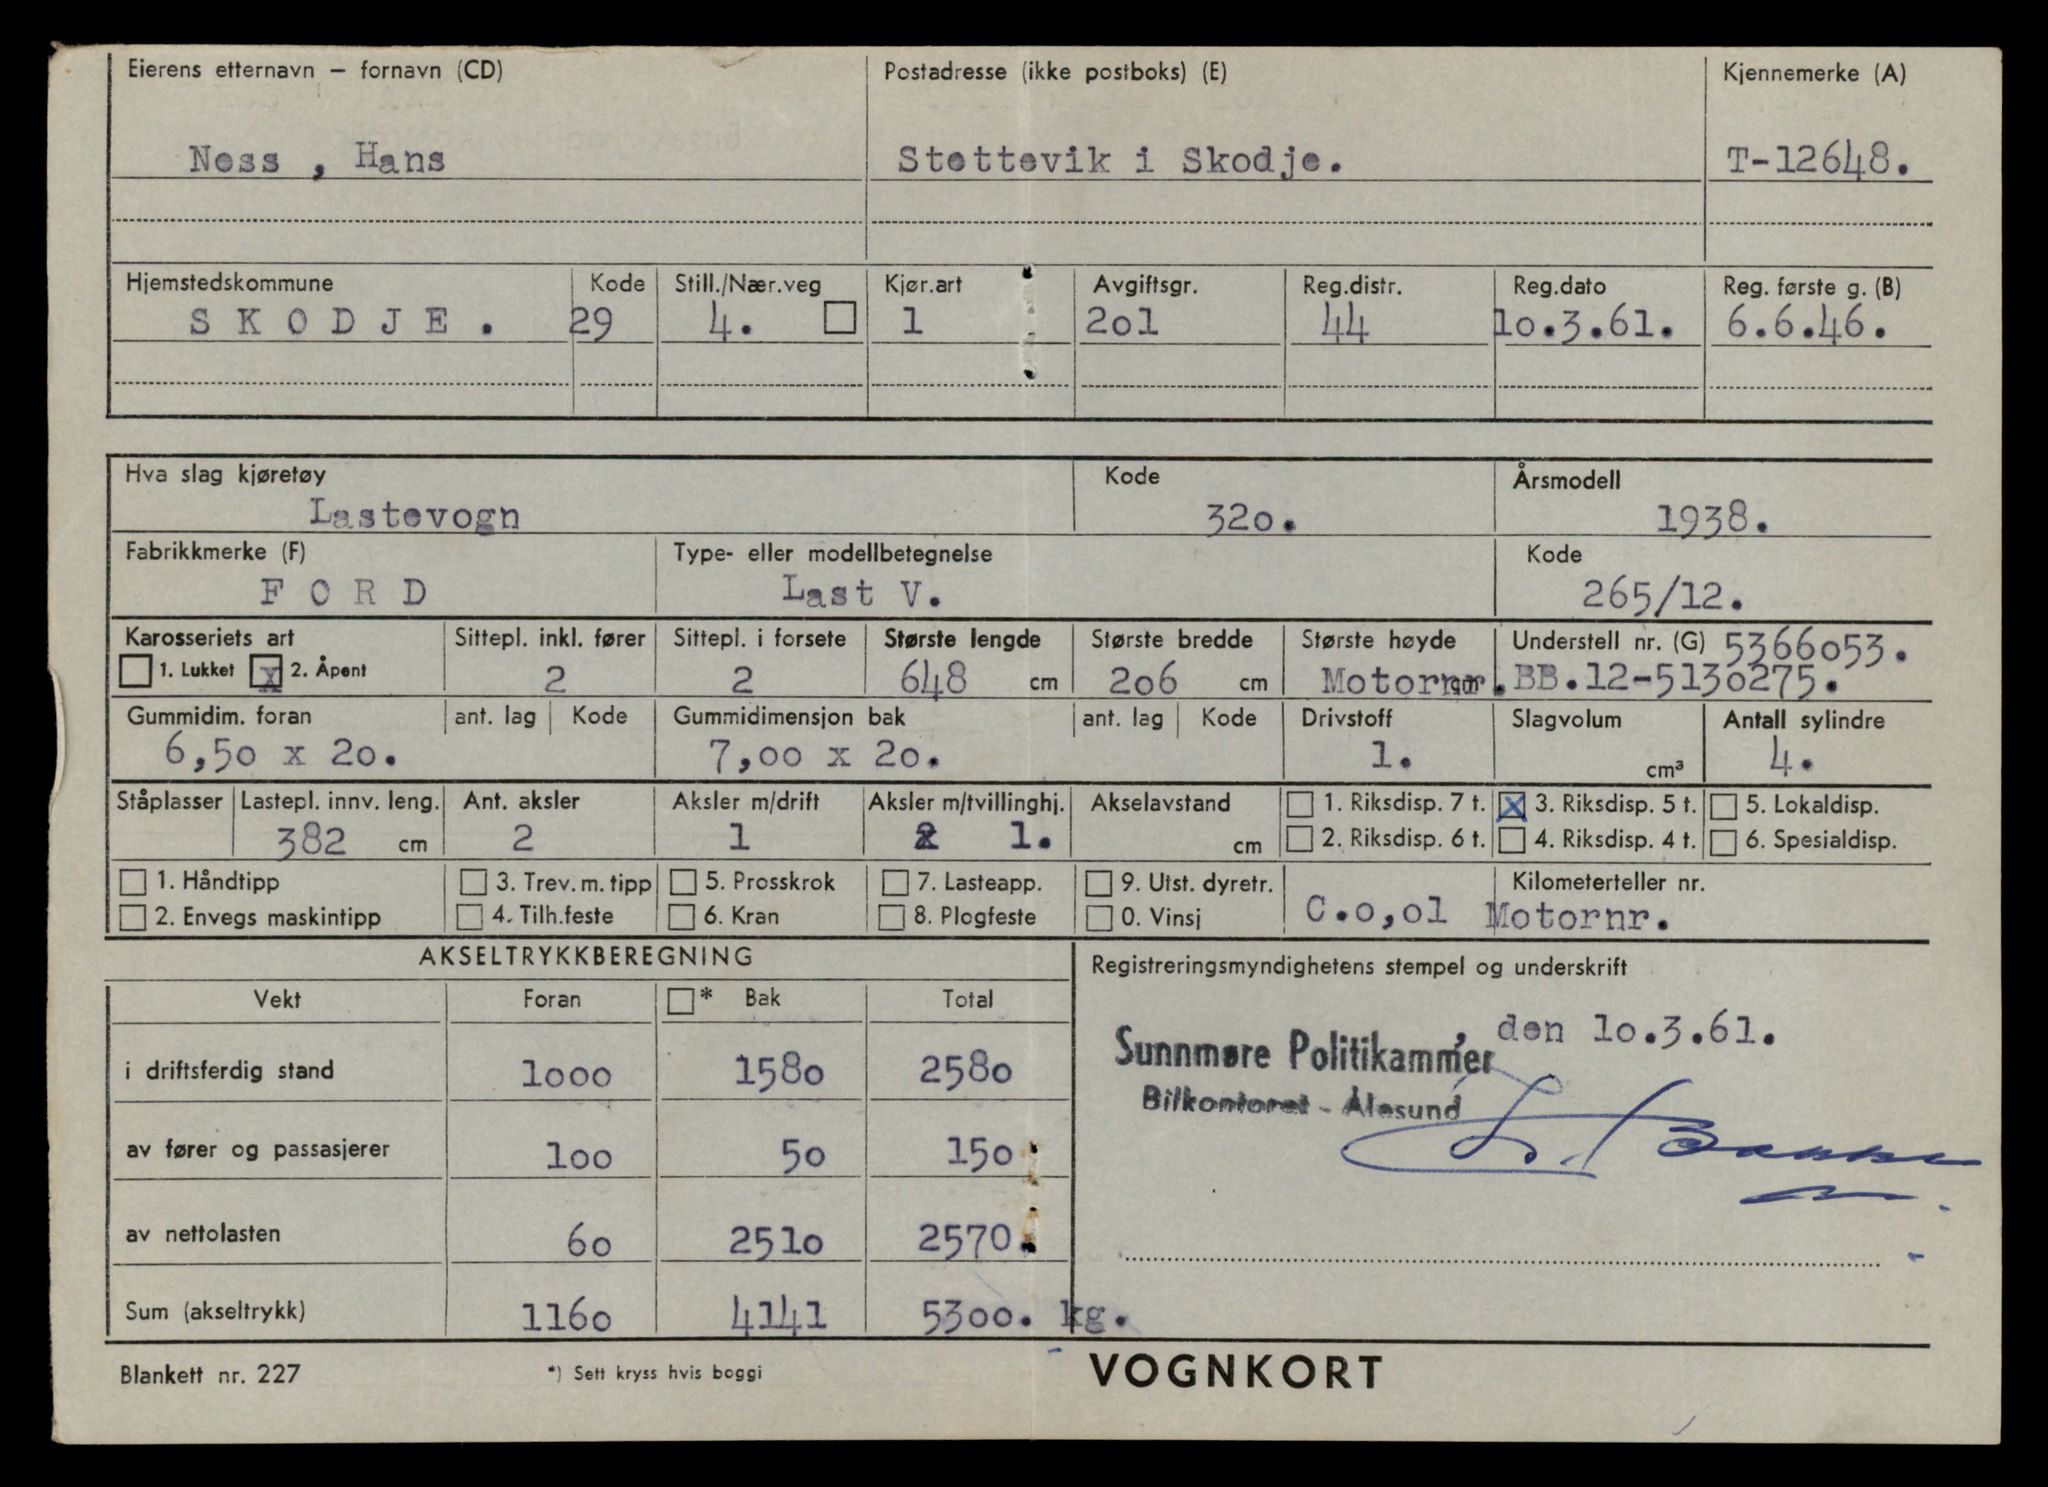 Eierens etternavn – fornavn (CD) Postadresse (ikke postboks) (E) Kjennemerke (A)
Ness , Hans Stettevik i Skodje. T-12648.
Hjemstedskommune Kode Still./Nær.veg Kjør.art Avgiftsgr. Reg.distr. Reg.dato Reg. første g. (B)
S K O D J E . 29 4. 1 2o1 44 1o.3.61. 6.6.46.
Hva slag kjøretøy Kode Årsmodell
Lastevogn 32o. 1938.
Fabrikkmerke (F) Type- eller modellbetegnelse Kode
F O R D Last V. 265/12.
Karosseriets art Sittepl. inkl. fører Sittepl. i forsete Største lengde Største bredde Største høyde Understell nr. (G) 5366o53.
1. Lukket x 2. Åpent 2 2 648 cm 2o6 cm Motornr. BB.12-513o275.
Gummidim. foran ant. lag Kode Gummidimensjon bak ant. lag Kode Drivstoff Slagvolum Antall sylindre
6,5o x 2o. 7,oo x 2o. 1. cm³ 4.
Ståplasser Lastepl. innv. leng. Ant. aksler Aksler m/drift Aksler m/tvillinghj. Akselavstand 1. Riksdisp. 7 t. X 3. Riksdisp. 5 t. 5. Lokaldisp.
382 cm 2 1 1. cm 2. Riksdisp. 6 t. 4. Riksdisp. 4 t. 6. Spesialdisp.
1. Håndtipp 3. Trev. m. tipp 5. Prosskrok 7. Lasteapp. 9. Utst. dyretr. Kilometerteller nr.
2. Envegs maskintipp 4. Tilh.feste 6. Kran 8. Plogfeste 0. Vinsj C.o,o1 Motornr.
AKSELTRYKKBEREGNING Registreringsmyndighetens stempel og underskrift
Vekt Foran * Bak Total
, den 1o.3.61.
Sunnmøre Politikammer
i driftsferdig stand 1ooo 158o 258o
Bilkontoret - Ålesund
av fører og passasjerer 1oo 5o 15o
av nettolasten 6o 251o 2570.
Sum (akseltrykk) 116o 4141 53oo. kg.
Blankett nr. 227 *) Sett kryss hvis boggi VOGNKORT